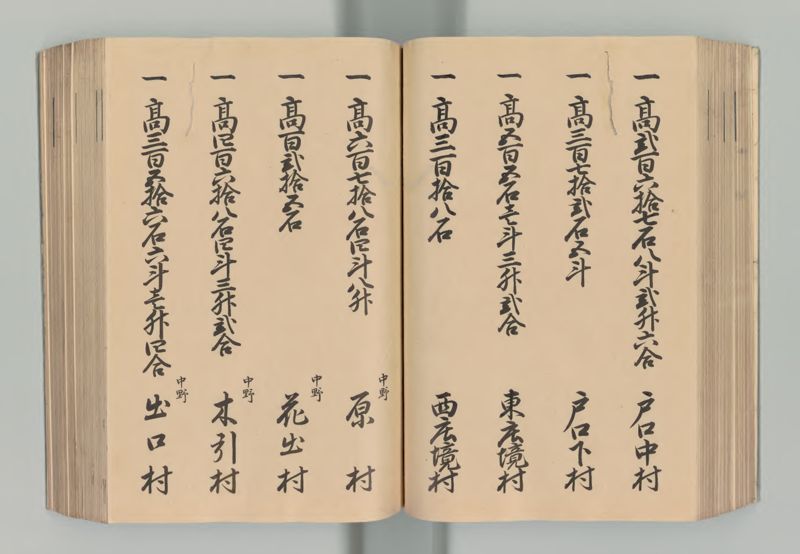 一 高弐百六拾七石八斗弐升六合 戸口中村
一 高三百七拾弐石五斗 戸口下村
一 高五百五石壱斗三升弐合 東広境村
一 高三百拾八石 西広境村
一 高六百七拾八石四斗八升 中野 原村
一 高百弐拾五石 中野 花出村
一 高四百六拾八石四斗三升弐合 中野 木引村
一 高三百五拾六石六斗壱升四合 中野 出口村